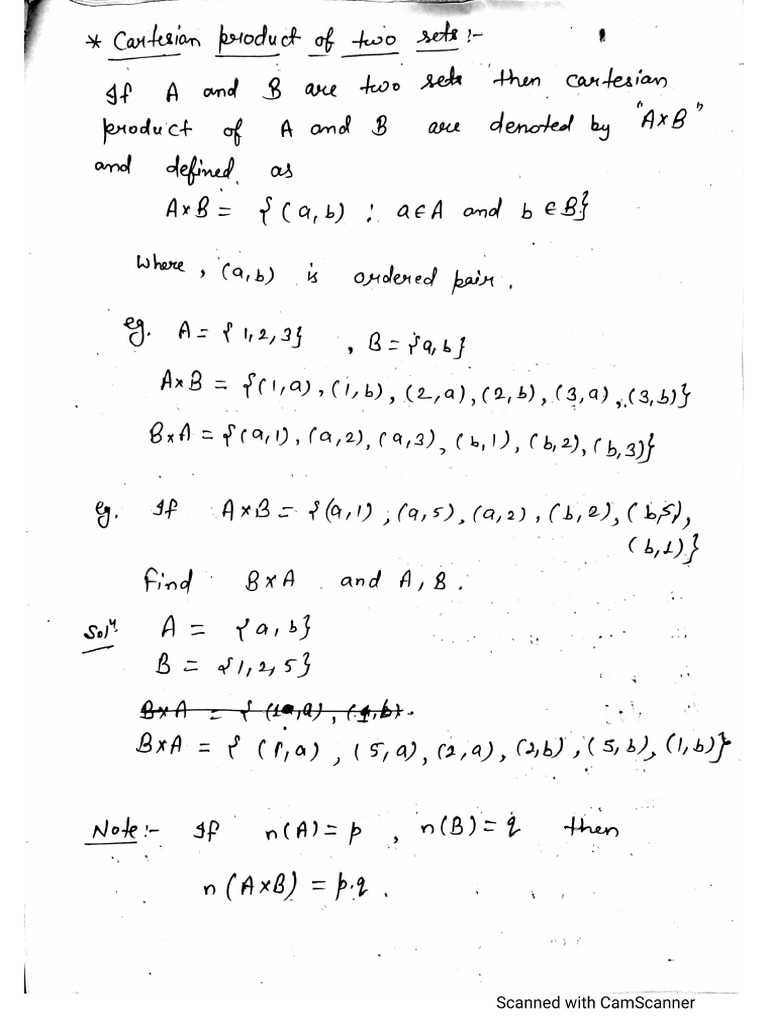 * Cartesian product of two sets :-
If A and B are two sets then cartesian
product of A and B are denoted by "A×B"
and defined as
A×B = {(a,b) : a∈A and b∈B}
where, (a,b) is ordered pair.
eg. A = {1,2,3} , B = {a,b}
A×B = {(1,a), (1,b), (2,a), (2,b), (3,a), (3,b)}
B×A = {(a,1), (a,2), (a,3), (b,1), (b,2), (b,3)}
eg. If A×B = {(a,1), (a,5), (a,2), (b,2), (b,5),
(b,1)}
find B×A and A, B.
Solⁿ. A = {a,b}
B = {1,2,5}
B×A = {(1,a), (5,a), (2,a), (2,b), (5,b), (1,b)}
Note :- If n(A) = p , n(B) = q then
n(A×B) = p.q .
Scanned with CamScanner